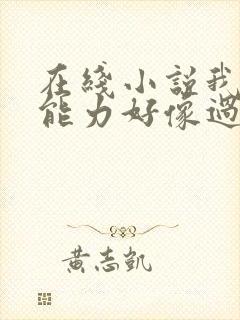 在线小说我
能力好像过
黄志凯